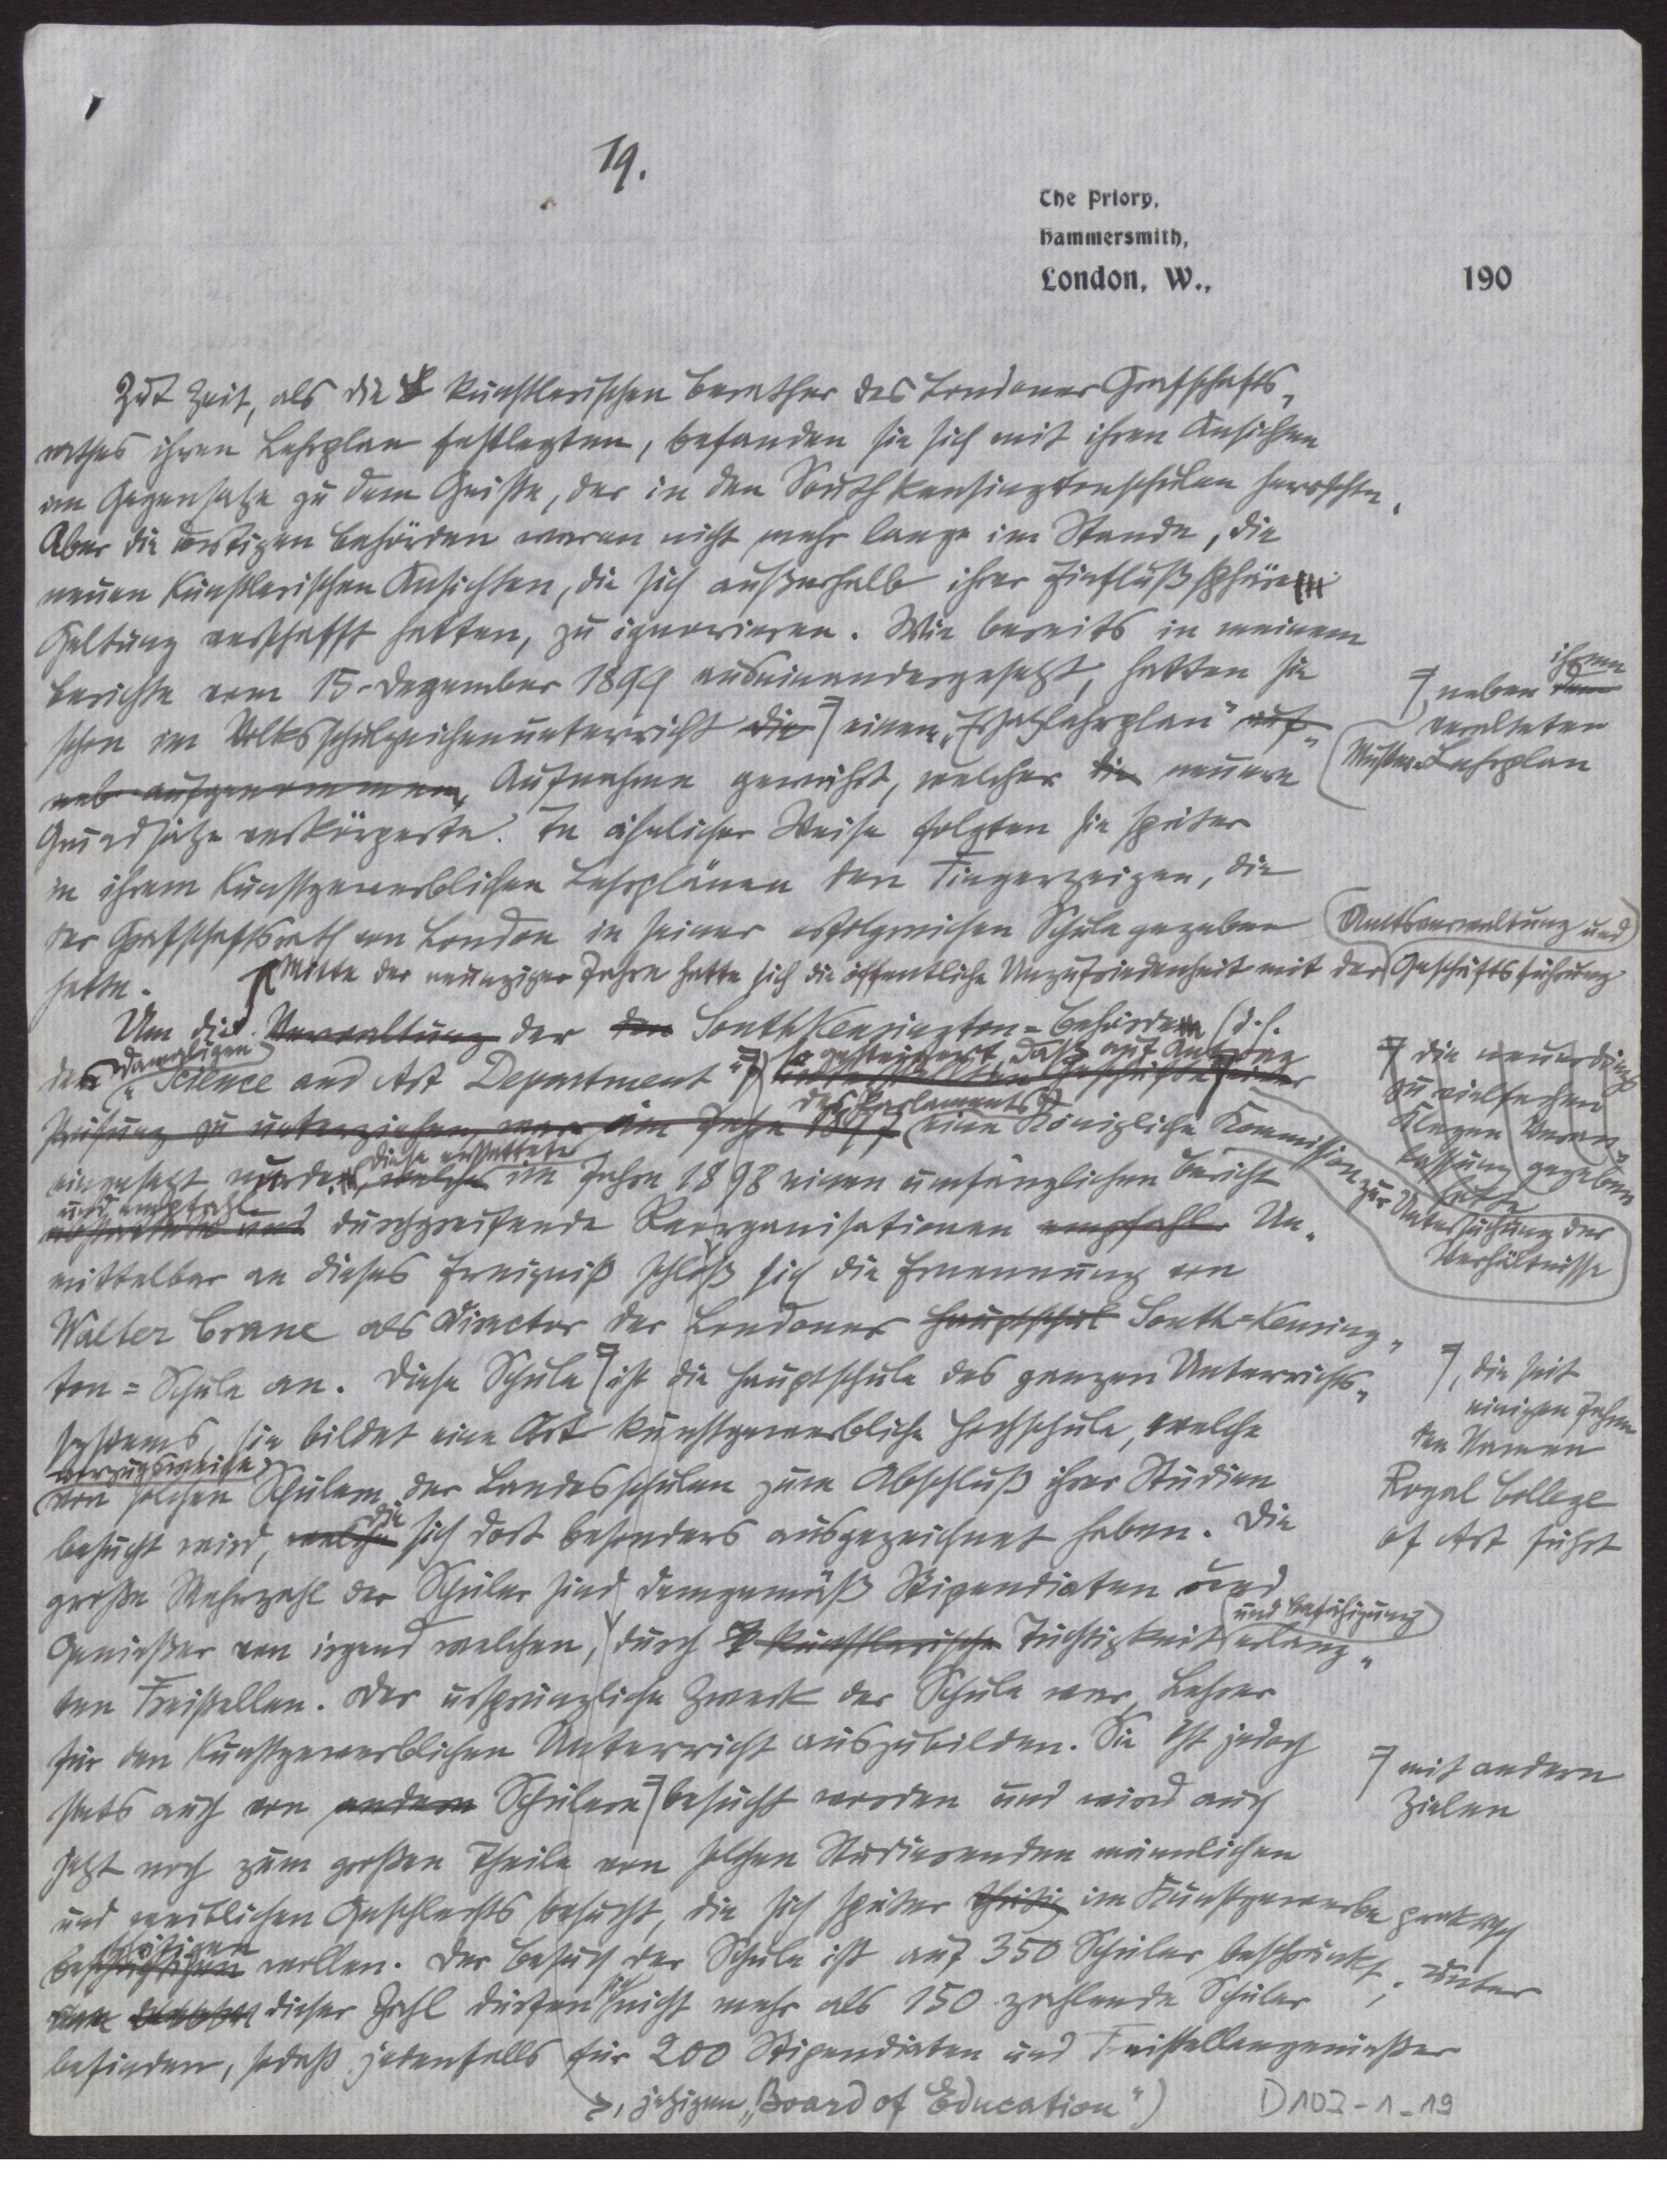 19.
The Priory,
Hammersmith,
London, W., 190
Zur Zeit, als die künstlerischen Berather des Londoner Grafschafts-
rathes ihren Lehrplan festlegten, befanden sie sich mit ihren Ansichten
im Gegensatze zu dem Geiste, der in den South Kensingtonschulen herrschte.
Aber die dortigen Behörden waren nicht mehr lange im Stande, die
neuen künstlerischen Ansichten, die sich außerhalb ihrer Einflußsphäre
Geltung verschafft hatten, zu ignorieren. Wie bereits in meinem
Berichte vom 15. Dezember 1899 auseinandergesetzt, hatten sie
schon im Volksschulzeichenunterricht die einem „Ersatzlehrplan" auf-
, neben ihrem dem
veralteten
Muster-Lehrplan
aufgenommen, Aufnahme gewährt, welcher die neuere
Grundsätze verkörperte. In ähnlicher Weise folgten sie später
in ihrem kunstgewerblichen Lehrplänen den Fingerzeigen, die
der Grafschaftsrath von London in seiner erfolgreichen Schule gegeben
hatte.
Mitte der neunziger Jahre hatte sich die öffentliche Unzufriedenheit mit der Amtsverwaltung und Geschäftsführung
Um die Verwaltung der den South Kensington-Behörden (d. h.
des damaligen „Science and Art Department"
so gesteigert, daß auf Antrag
des Parlaments
die neuerdings
zu vielfachen
Klagen Veran-
lassung gegeben
hatte
Prüfung zu unterziehen, war im Jahre 1897 eine Königliche Kommission zur Untersuchung der Verhältnisse
eingesetzt wurde, welche diese erstattete im Jahre 1898 einen umfänglichen Bericht
und empfahl
erstattete und durchgreifende Reorganisationen empfahl. Un-
mittelbar an dieses Ereigniß schloß sich die Ernennung von
Walter Crane als Director der Londoner Hauptschul South-Kensing-
ton-Schule an. Diese Schule ist die Hauptschule des ganzen Unterrichts-
, die seit
einigen Jahren
den Namen
Royal College
of Art führt
systems, sie bildet eine Art kunstgewerbliche Hochschule, welche
vorzugsweise
von solchen Schülern der Landesschulen zum Abschluß ihrer Studien
besucht wird, welche die sich dort besonders ausgezeichnet haben. Die
große Mehrzahl der Schüler sind demgemäß Stipendiaten und
Genießer von irgend welchen, durch künstlerische Tüchtigkeit und Befähigung erlang-
ten Freistellen. Der ursprüngliche Zweck der Schule war, Lehrer
für den kunstgewerblichen Unterricht auszubilden. Sie ist jedoch
stets auch von andern Schülern besucht worden und wird auch
mit andern
Zielen
jetzt noch zum großen Theile von solchen Studierenden männlichen
und weiblichen Geschlechts besucht, die sich später thätig im Kunstgewerbe praktisch
bethätigen
beschäftigen wollen. Der Besuch der Schule ist auf 350 Schüler beschränkt; unter
dieser Zahl dürfen sich nicht mehr als 150 zahlende Schüler
befinden, sodaß jedenfalls für 200 Stipendiaten und Freistellengenießer
, jetzigen „Board of Education")
D 102-1-19